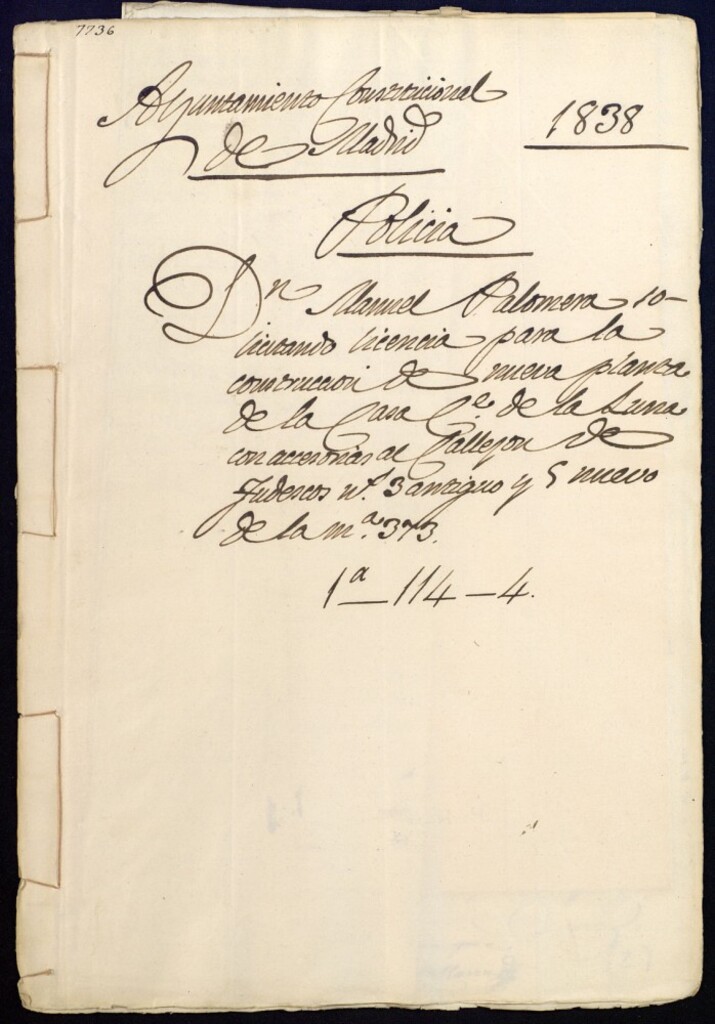 7736
Ayuntamiento Constitucional
de Madrid
1838
Policia
Dn Manuel Palomera so-
licitando licencia para la
construccion de nueva planta
de la Casa Ce. de la Luna
con accesorias al Callejon de
Tudescos n.º 3 antiguo y 5 nuevo
de la m.ª 373.
1ª — 114 — 4.